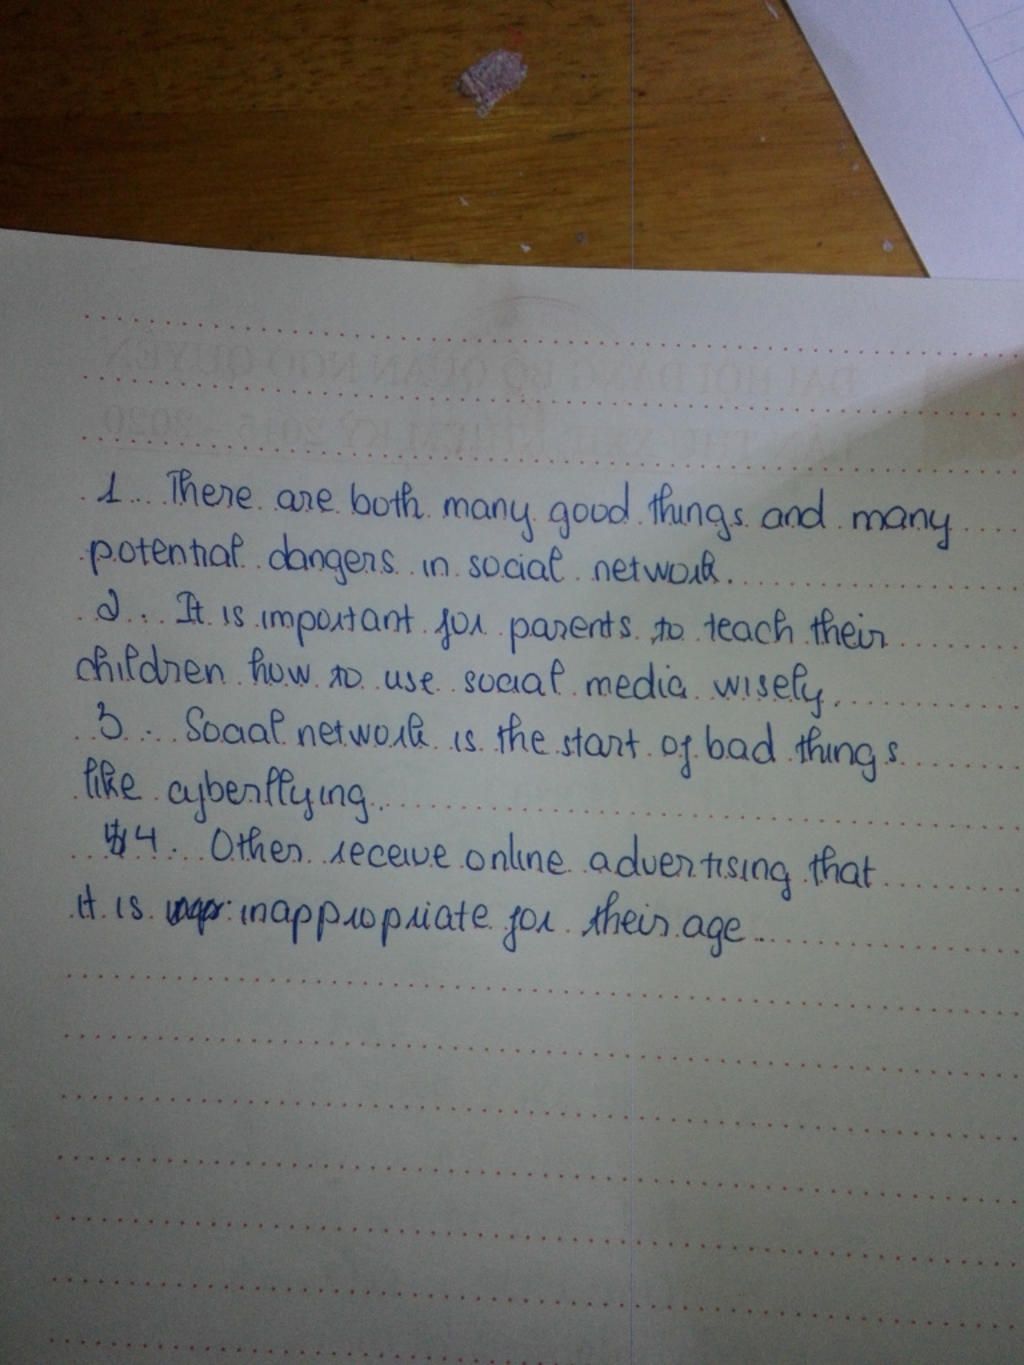 1... There are both many good things and many
potential dangers in social network.
2... It is important for parents to teach their
children how to use social media wisely.
3... Social network is the start of bad things
like cyberflying.
4. Other receive online advertising that
it is inappropriate for their age